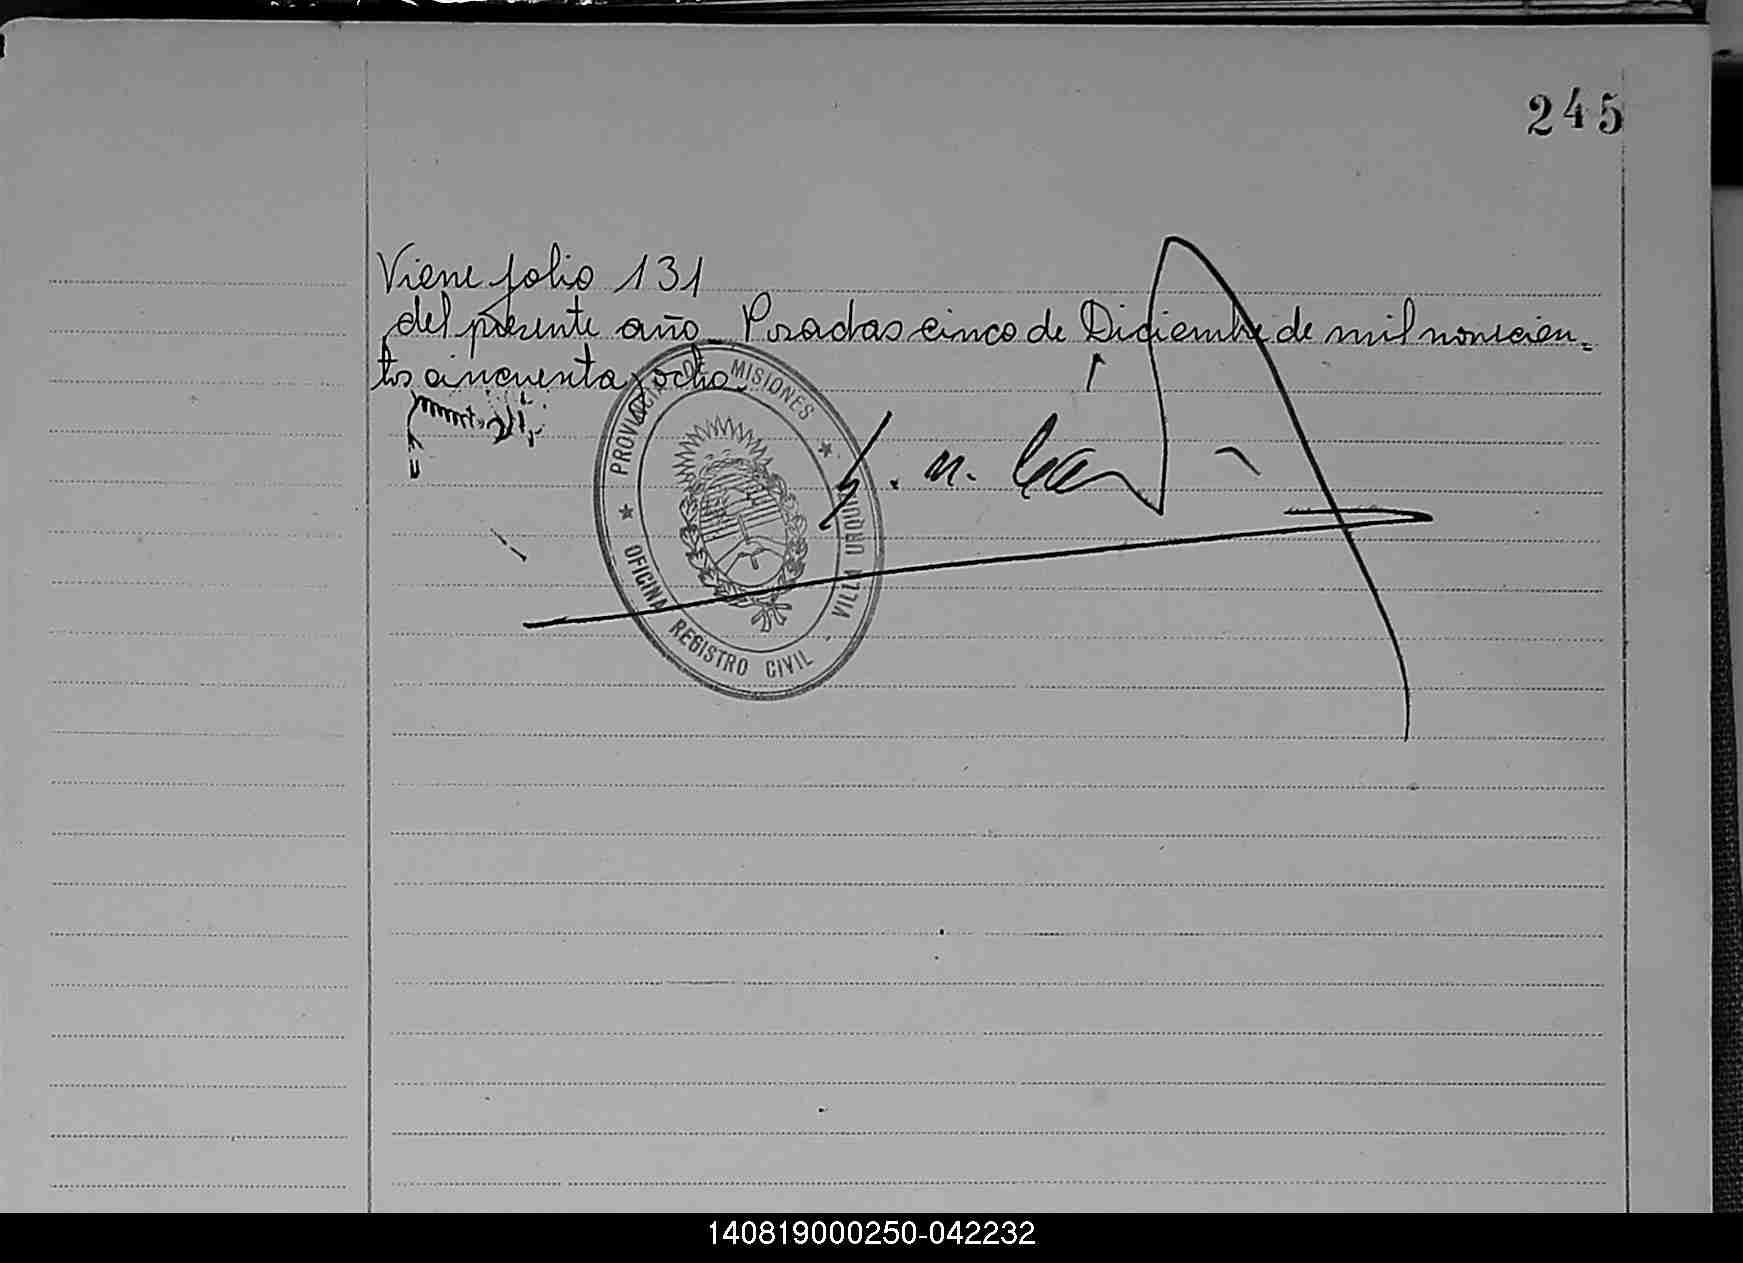 245
Viene folio 131
del presente año Posadas cinco de Diciembre de mil novecien-
tos cincuenta y ocho.
PROVINCIA DE MISIONES
OFICINA REGISTRO CIVIL
VILLA URQUIZA
140819000250-042232